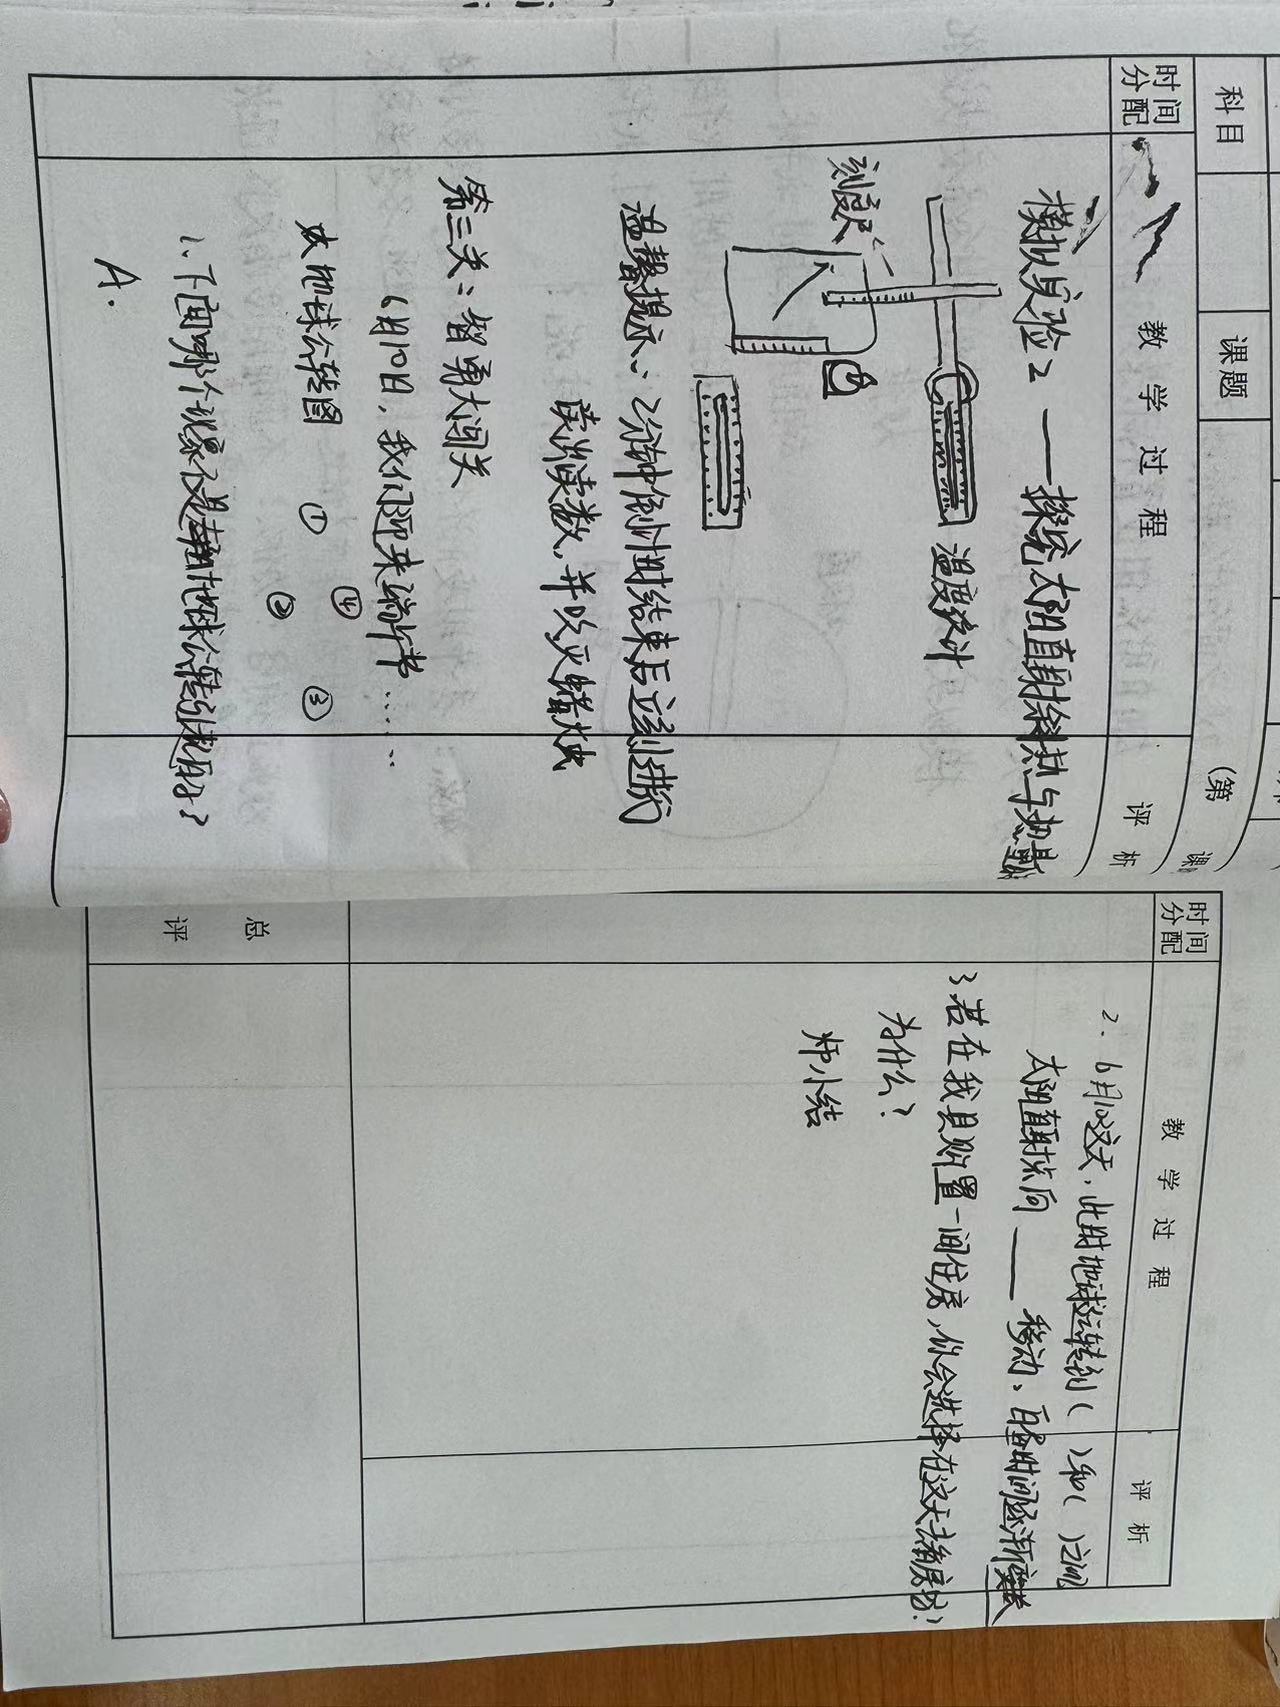 科目 课题 (第 课
时间分配 教学过程 评析
模拟实验2——探究太阳直射斜热与热量
温度计
刻度尺
温馨提示:2分钟倒计时结束后立刻进行
读出读数,并吹灭蜡烛
第三关:智勇大闯关
6月10日,我们迎来端午节……
地球公转图 ① ② ③ ④
1、下面哪个现象不是地球公转引起的?
A.
时间分配 教学过程 评析
2、6月10这天,此时地球运转到( )和( )之间
太阳直射点向____移动、白昼时间逐渐变
3若在我县购置一间住房,你会选择在这天去看房吗?
为什么?
师小结
总评